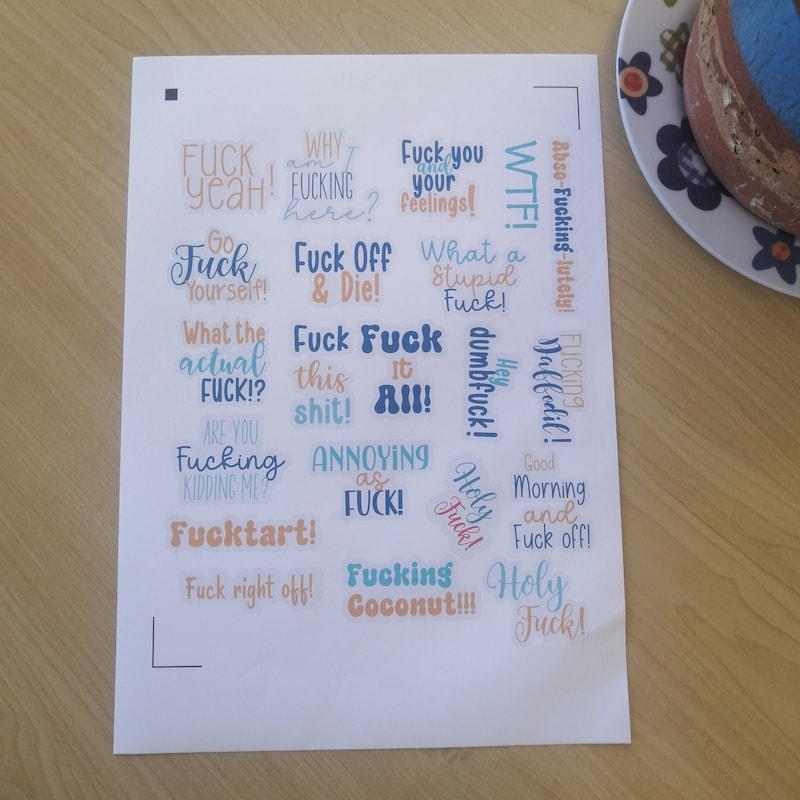 FUCK
YEAH!
WHY
am I
FUCKING
here?
Fuck you
and
your
feelings!
WTF!
Abso-Fucking-lutely!
Go
Fuck
Yourself!
Fuck Off
& Die!
What a
Stupid
Fuck!
What the
actual
FUCK!?
Fuck
this
shit!
Fuck
It
All!
Hey
dumbfuck!
FUCKING
Daffodil!
ARE YOU
Fucking
KIDDING ME?
ANNOYING
as
FUCK!
Holy
Fuck!
Good
Morning
and
Fuck off!
Fucktart!
Fuck right off!
Fucking
Coconut!!!
Holy
Fuck!